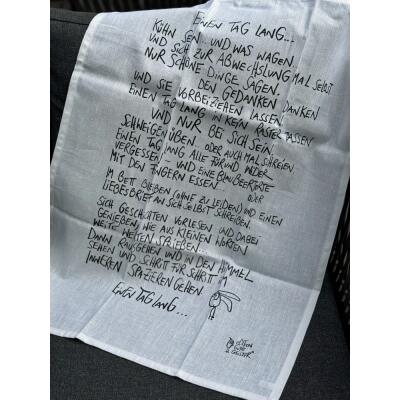 EINEN TAG LANG...
KÜHN SEIN... UND WAS WAGEN
UND SICH ZUR ABWECHSLUNG MAL SELBST
NUR SCHÖNE DINGE SAGEN.
DEN GEDANKEN DANKEN
UND SIE VORBEIZIEHEN LASSEN
EINEN TAG LANG IN KEIN RASTER PASSEN
UND NUR BEI SICH SEIN.
SCHWEIGEN ÜBEN ODER AUCH MAL SCHREIEN.
EINEN TAG LANG ALLE FÜR UND WIDER
VERGESSEN... UND EINE BLAUBEERTORTE
MIT DEN FINGERN ESSEN...
IM BETT BLEIBEN (OHNE ZU LEIDEN) UND EINEN
LIEBESBRIEF AN SICH SELBST SCHREIBEN. ODER
SICH GESCHICHTEN VORLESEN UND DABEI
GENIEßEN, WIE AUS KLEINEN WORTEN
WEITE WELTEN SPRIEßEN...
DANN RAUSGEHEN UND IN DEN HIMMEL
SEHEN UND SCHRITT FÜR SCHRITT IM
INNEREN SPAZIEREN GEHEN.
EINEN TAG LANG...
GUTE
GEISTER